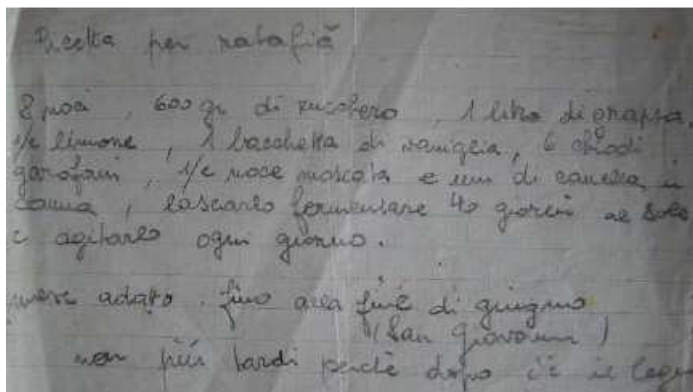 Ricetta per ratafià
8 noci, 600 gr di zucchero, 1 litro di grappa,
1/2 limone, 1 bacchetta di vaniglia, 6 chiodi
garofani, 1/2 noce moscata e di canella in
canna, lasciarlo fermentare 40 giorni al sole
e agitarlo ogni giorno.
adato. fino alla fine di giugno
(San Giovanni)
non più tardi perchè dopo c'è il